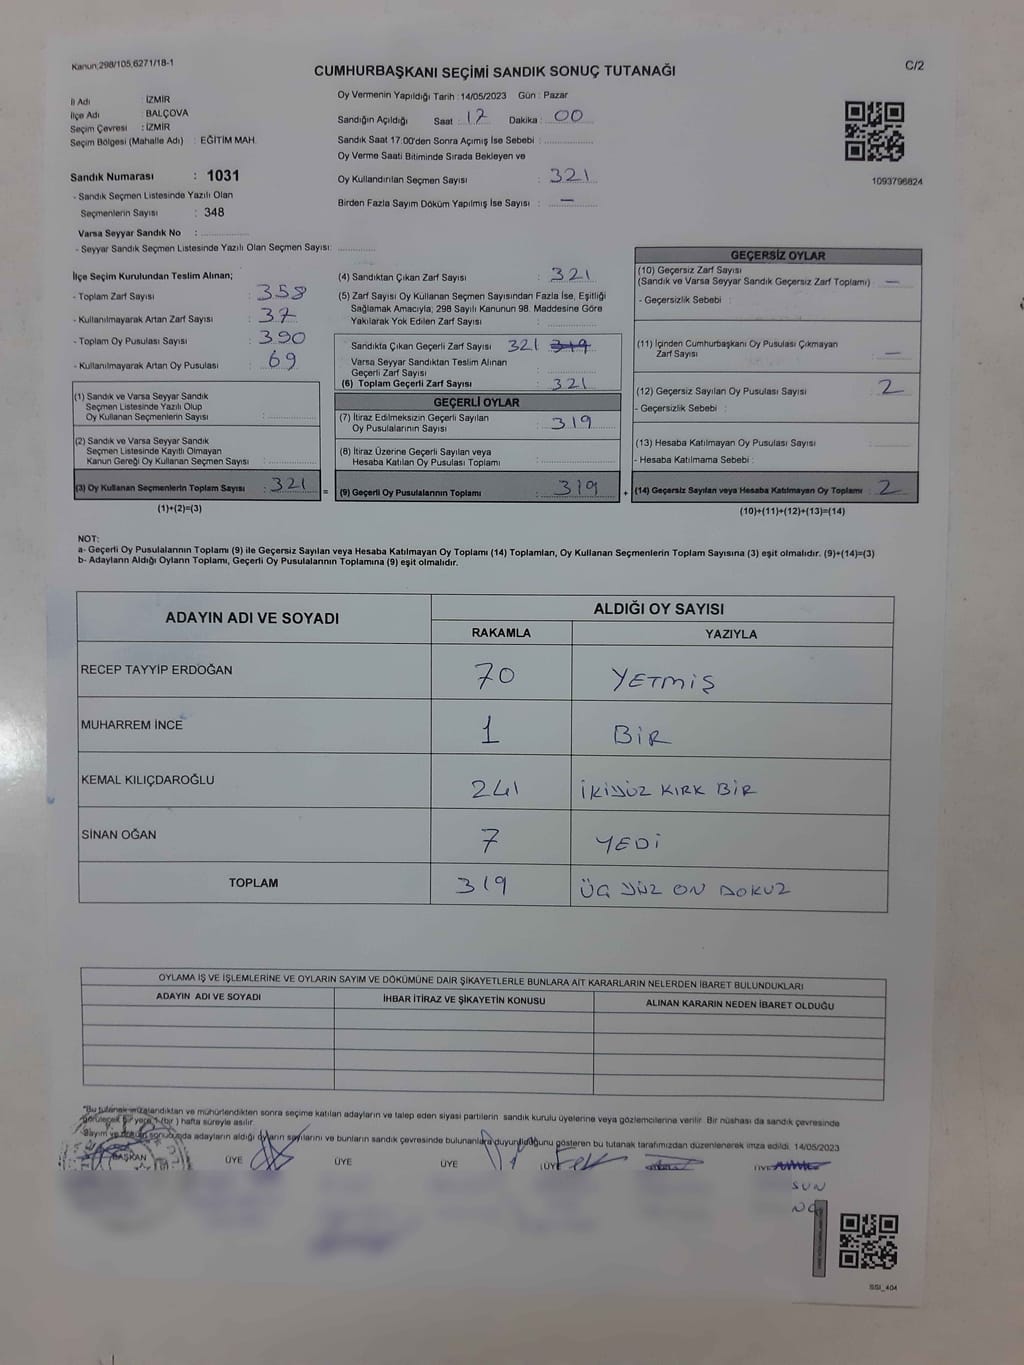 Kanun;298/105,6271/18-1
CUMHURBAŞKANI SEÇİMİ SANDIK SONUÇ TUTANAĞI
C/2
İl Adı : İZMİR
İlçe Adı : BALÇOVA
Seçim Çevresi : İZMİR
Seçim Bölgesi (Mahalle Adı) : EĞİTİM MAH.
Sandık Numarası : 1031
- Sandık Seçmen Listesinde Yazılı Olan
Seçmenlerin Sayısı : 348
Varsa Seyyar Sandık No :
- Seyyar Sandık Seçmen Listesinde Yazılı Olan Seçmen Sayısı:
Oy Vermenin Yapıldığı Tarih : 14/05/2023 Gün : Pazar
Sandığın Açıldığı Saat : 17 Dakika : 00
Sandık Saat 17:00'den Sonra Açımış İse Sebebi :
Oy Verme Saati Bitiminde Sırada Bekleyen ve
Oy Kullandırılan Seçmen Sayısı : 321
Birden Fazla Sayım Döküm Yapılmış İse Sayısı : —
1093796824
İlçe Seçim Kurulundan Teslim Alınan;
- Toplam Zarf Sayısı : 358
- Kullanılmayarak Artan Zarf Sayısı : 37
- Toplam Oy Pusulası Sayısı : 390
- Kullanılmayarak Artan Oy Pusulası : 69
(1) Sandık ve Varsa Seyyar Sandık
Seçmen Listesinde Yazılı Olup
Oy Kullanan Seçmenlerin Sayısı :
(2) Sandık ve Varsa Seyyar Sandık
Seçmen Listesinde Kayıtlı Olmayan
Kanun Gereği Oy Kullanan Seçmen Sayısı :
(3) Oy Kullanan Seçmenlerin Toplam Sayısı : 321 =
(1)+(2)=(3)
(4) Sandıktan Çıkan Zarf Sayısı : 321
(5) Zarf Sayısı Oy Kullanan Seçmen Sayısından Fazla İse, Eşitliği
Sağlamak Amacıyla; 298 Sayılı Kanunun 98. Maddesine Göre
Yakılarak Yok Edilen Zarf Sayısı :
Sandıkta Çıkan Geçerli Zarf Sayısı 321 319
Varsa Seyyar Sandıktan Teslim Alınan
Geçerli Zarf Sayısı :
(6) Toplam Geçerli Zarf Sayısı : 321
GEÇERLİ OYLAR
(7) İtiraz Edilmeksizin Geçerli Sayılan
Oy Pusulalarının Sayısı : 319
(8) İtiraz Üzerine Geçerli Sayılan veya
Hesaba Katılan Oy Pusulası Toplamı :
(9) Geçerli Oy Pusulalarının Toplamı : 319 +
GEÇERSİZ OYLAR
(10) Geçersiz Zarf Sayısı
(Sandık ve Varsa Seyyar Sandık Geçersiz Zarf Toplamı) : —
- Geçersizlik Sebebi :
(11) İçinden Cumhurbaşkanı Oy Pusulası Çıkmayan
Zarf Sayısı : —
(12) Geçersiz Sayılan Oy Pusulası Sayısı : 2
- Geçersizlik Sebebi :
(13) Hesaba Katılmayan Oy Pusulası Sayısı :
- Hesaba Katılmama Sebebi :
(14) Geçersiz Sayılan veya Hesaba Katılmayan Oy Toplamı : 2
(10)+(11)+(12)+(13)=(14)
NOT:
a- Geçerli Oy Pusulalarının Toplamı (9) ile Geçersiz Sayılan veya Hesaba Katılmayan Oy Toplamı (14) Toplamları, Oy Kullanan Seçmenlerin Toplam Sayısına (3) eşit olmalıdır. (9)+(14)=(3)
b- Adayların Aldığı Oyların Toplamı, Geçerli Oy Pusulalarının Toplamına (9) eşit olmalıdır.
ADAYIN ADI VE SOYADI
ALDIĞI OY SAYISI
RAKAMLA YAZIYLA
RECEP TAYYİP ERDOĞAN 70 YETMİŞ
MUHARREM İNCE 1 BİR
KEMAL KILIÇDAROĞLU 241 İKİYÜZ KIRK BİR
SİNAN OĞAN 7 YEDİ
TOPLAM 319 ÜÇ YÜZ ON DOKUZ
OYLAMA İŞ VE İŞLEMLERİNE VE OYLARIN SAYIM VE DÖKÜMÜNE DAİR ŞİKAYETLERLE BUNLARA AİT KARARLARIN NELERDEN İBARET BULUNDUKLARI
ADAYIN ADI VE SOYADI İHBAR İTİRAZ VE ŞİKAYETİN KONUSU ALINAN KARARIN NEDEN İBARET OLDUĞU
*Bu tutanak imzalandıktan ve mühürlendikten sonra seçime katılan adayların ve talep eden siyasi partilerin sandık kurulu üyelerine veya gözlemcilerine verilir. Bir nüshası da sandık çevresinde
görülecek bir yere 1 (bir) hafta süreyle asılır.
Sayım ve döküm sonucunda adayların aldığı oyların sayılarını ve bunların sandık çevresinde bulunanlara duyurulduğunu gösteren bu tutanak tarafımızdan düzenlenerek imza edildi. 14/05/2023
BAŞKAN ÜYE ÜYE ÜYE ÜYE
SUN
SSİ_404